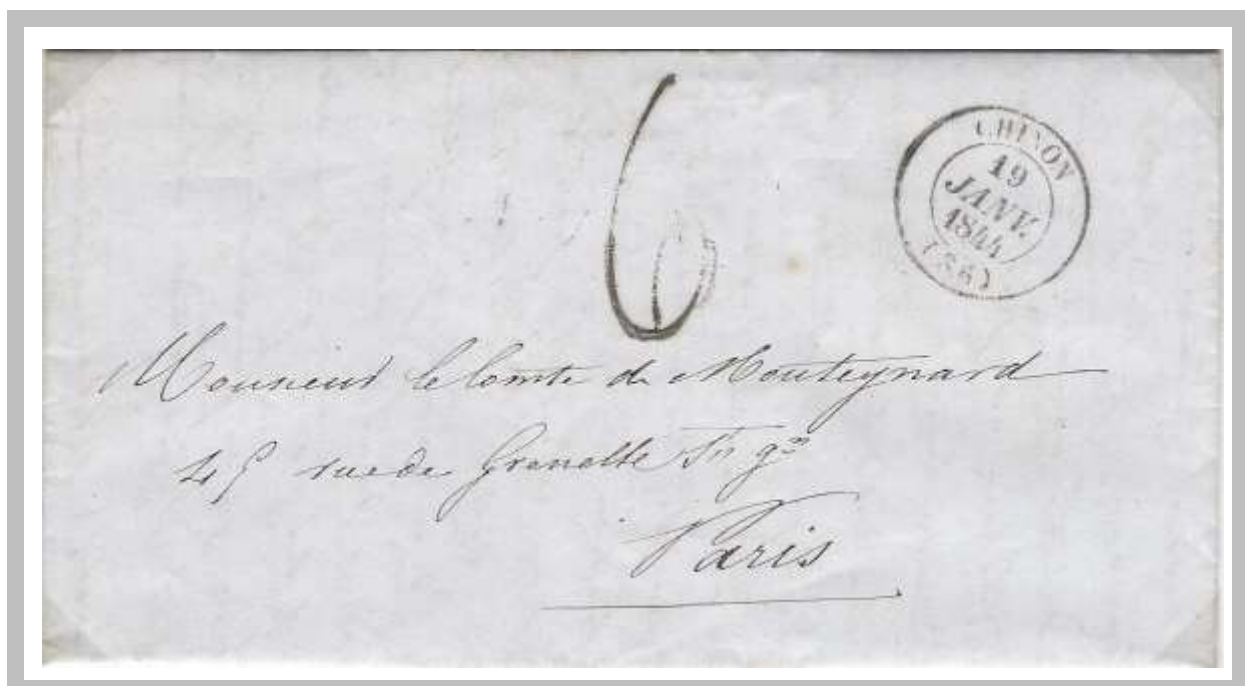 6
CHINON
19
JANV.
1844
(36)
Monsieur le Comte de Monteynard
45 rue de Grenelle St gm
Paris